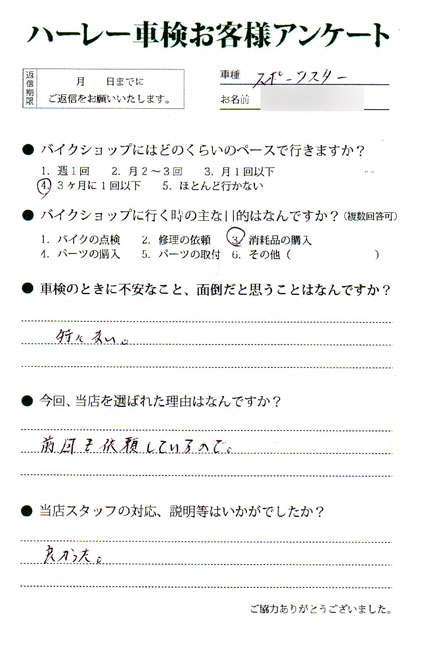 ハーレー車検お客様アンケート
返信期限
月 日までに
ご返信をお願いいたします。
車種 スポーツスター
お名前
● バイクショップにはどのくらいのペースで行きますか？
1. 週1回 2. 月2～3回 3. 月1回以下
4. 3ヶ月に1回以下 5. ほとんど行かない
● バイクショップに行く時の主な目的はなんですか？(複数回答可)
1. バイクの点検 2. 修理の依頼 3. 消耗品の購入
4. パーツの購入 5. パーツの取付 6. その他（ ）
● 車検のときに不安なこと、面倒だと思うことはなんですか？
特にない。
● 今回、当店を選ばれた理由はなんですか？
前回も依頼しているので。
● 当店スタッフの対応、説明等はいかがでしたか？
良かった。
ご協力ありがとうございました。